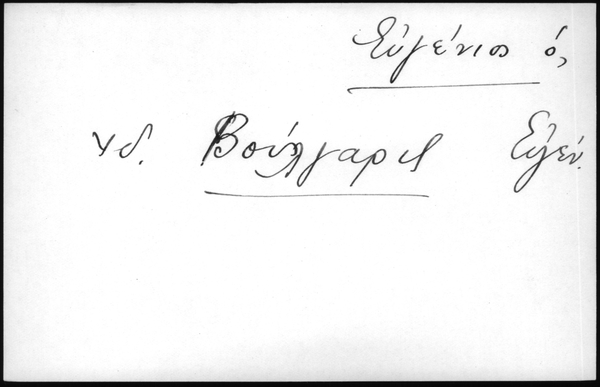 Εὐγένιος ὁ,
ἰδ. Βούλγαρις Εὐγέν.